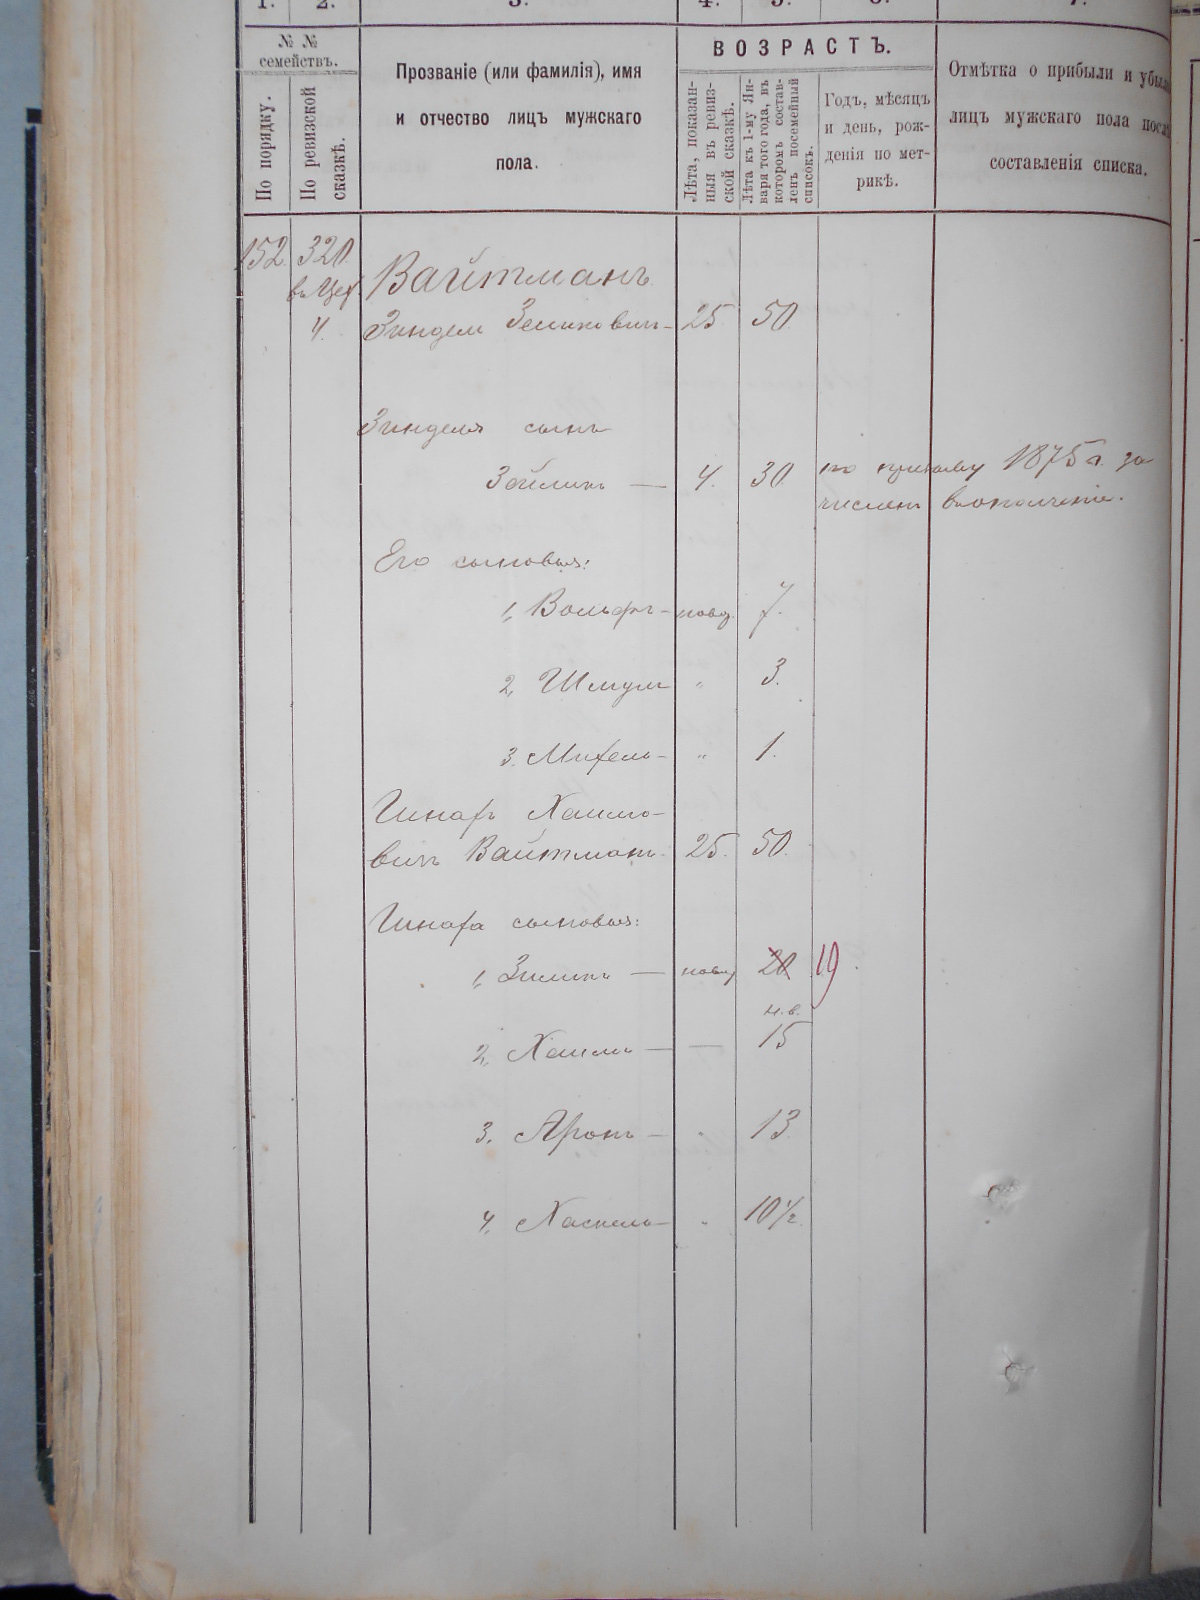 1. 2. 3. 4. 5. 6. 7.
№ №
семействъ.
По порядку.
По ревизской
сказкѣ.
Прозваніе (или фамилія), имя
и отчество лицъ мужскаго
пола.
ВОЗРАСТЪ.
Лѣта, показан-
ныя въ ревиз-
ской сказкѣ.
Лѣта къ 1-му Ян-
варя того года, въ
которомъ состав-
ленъ посемейный
списокъ.
Годъ, мѣсяцъ
и день, рож-
денія по мет-
рикѣ.
Отмѣтка о прибыли и убыли
лицъ мужскаго пола посл
составленія списка.
152. 320.
въ Цех. Вайтманъ
4. Зиндель Зеликовичъ - 25 50
Зинделя сынъ
Зейликъ — 4. 30. по призыву 1875 г. за
численъ въ ополченіе.
Его сыновья:
1, Вольфъ - новор. 7.
2, Шмуль " 3.
3. Михель - " 1.
Хаимо-
вичъ Вайтманъ. 25. 50.
сыновья:
1, Зиликъ — новор 20 19.
н. в.
2, Хаимъ — — 15
3. Аронъ — " 13.
4, Хаскель - " 10 1/2.